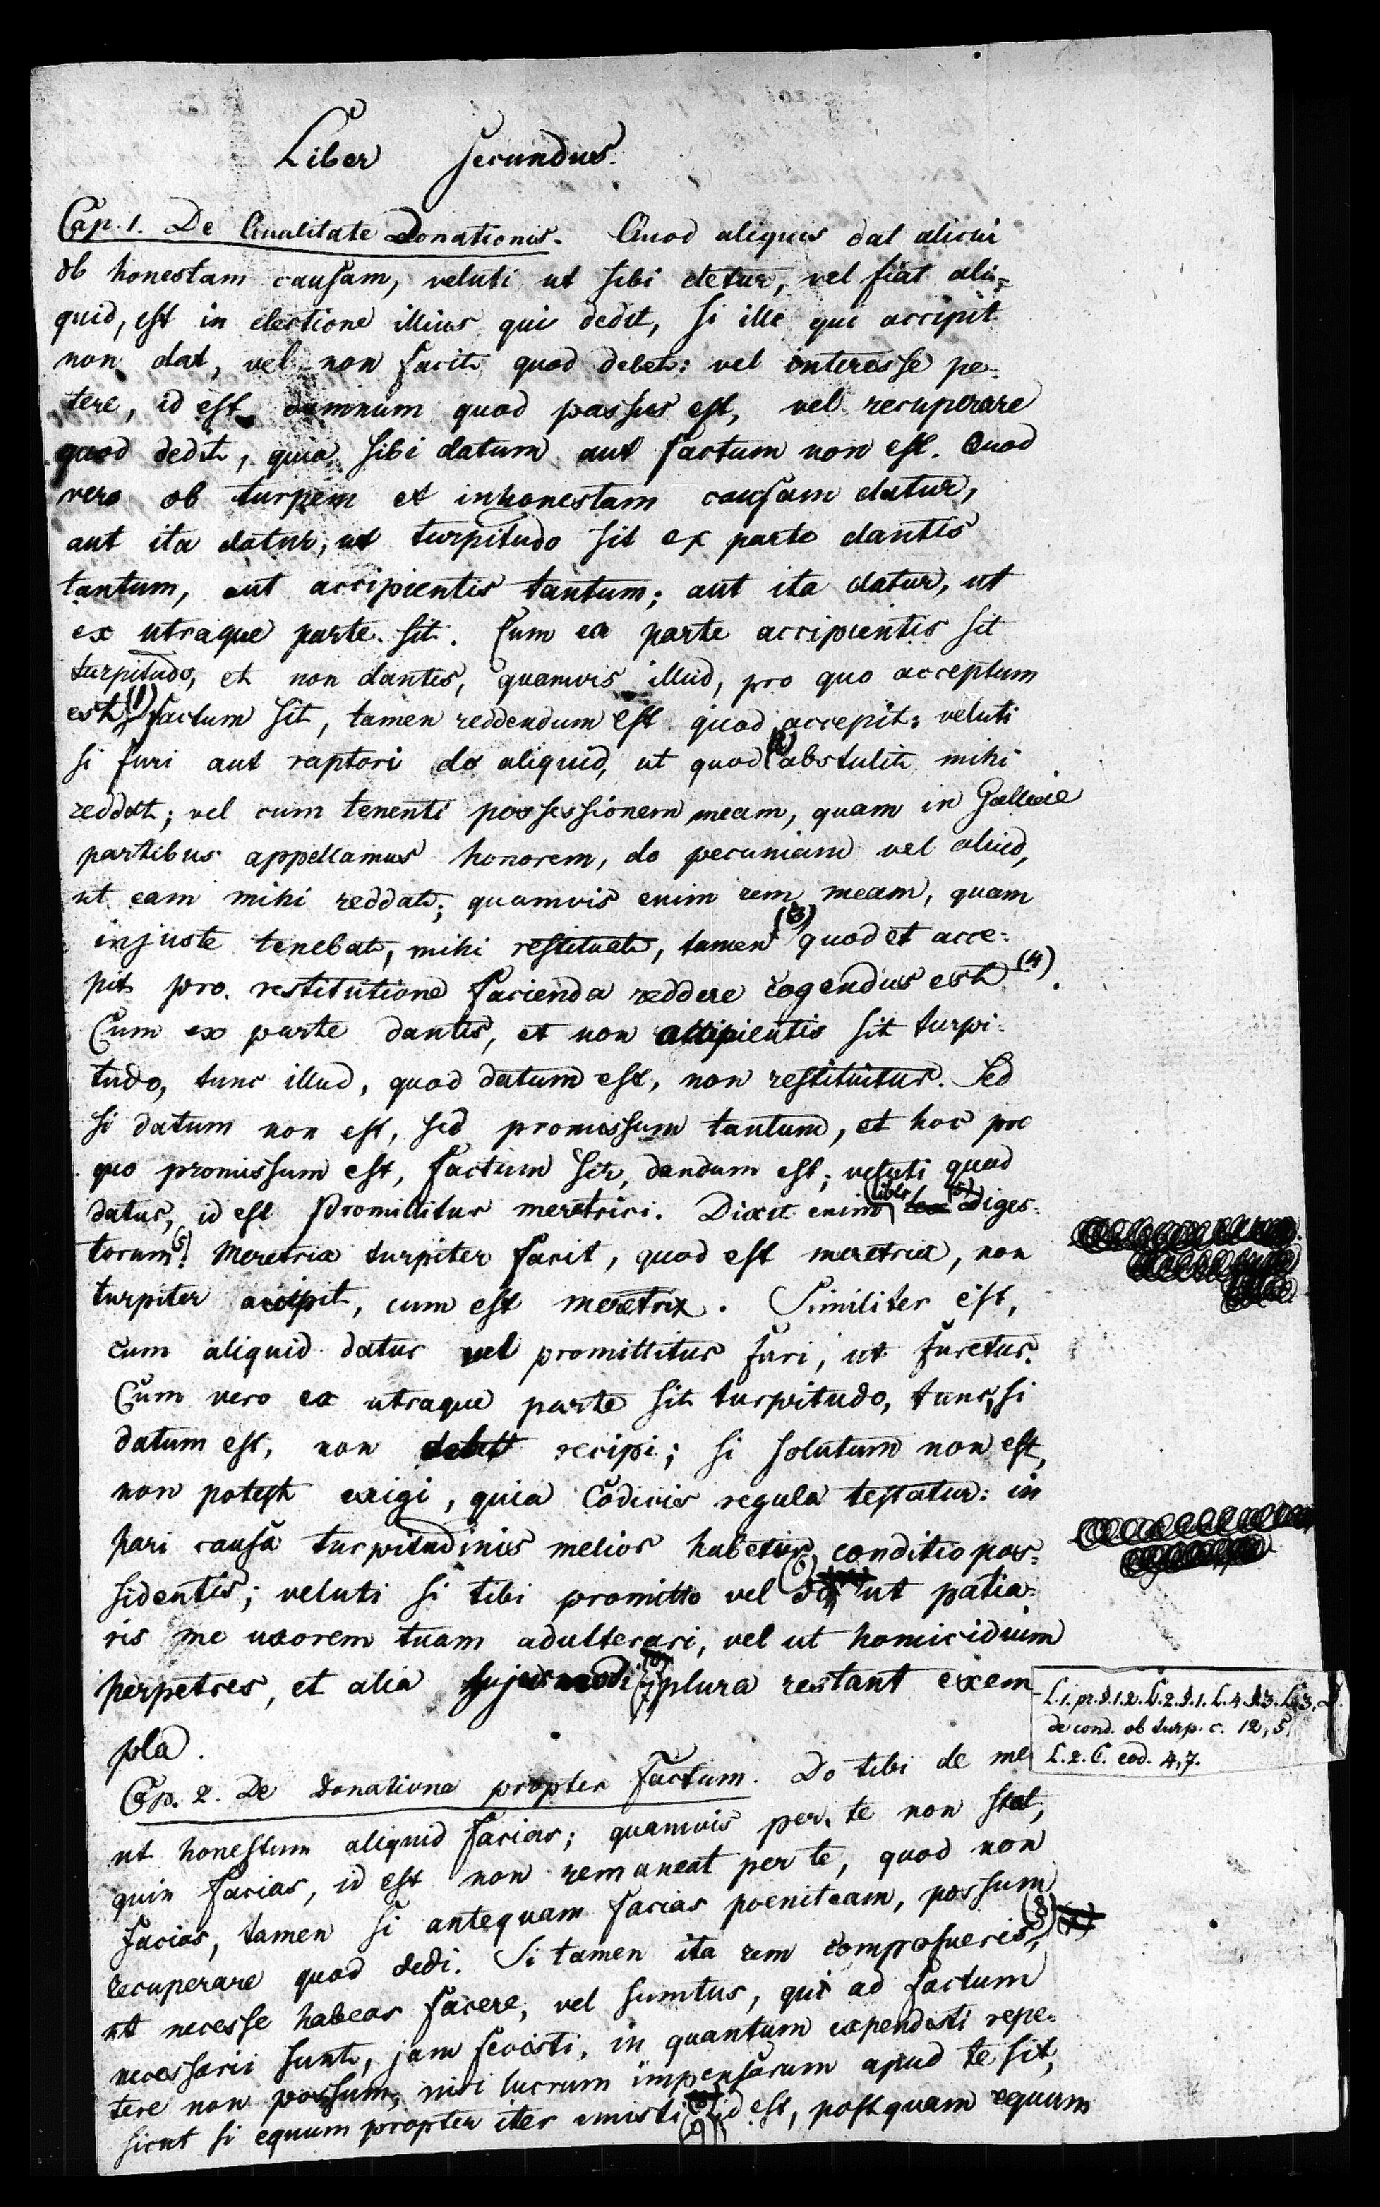 Liber secundus.
Cap. 1. De Qualitate Donationis. Quod aliquis dat alicui
ob honestam causam, veluti ut sibi detur, vel fiat ali-
quid, est in electione illius qui dedit, si ille qui accipit
non dat, vel non facit quod debet: vel interesse pe-
tere, id est damnum quod passus est, vel recuperare
quod dedit, quia sibi datum aut factum non est. Quod
vero ob turpem et inhonestam causam datur,
aut ita datur, ut turpitudo sit ex parte dantis
tantum, aut accipientis tantum; aut ita datur, ut
ex utraque parte sit. Cum ex parte accipientis sit
turpitudo, et non dantis, quamvis illud, pro quo acceptum
est (1) factum sit, tamen reddendum est quod accepit: veluti
si furi aut raptori do aliquid, ut quod (2) abstulit mihi
reddat; vel cum tenenti possessionem meam, quam in Galliae
partibus appellamus honorem, do pecuniam vel aliud,
ut eam mihi reddat; quamvis enim rem meam, quam
injuste tenebat, mihi restituat, tamen (3) quod et acce-
pit pro restitutione facienda reddere cogendus est (4).
Cum ex parte dantis, et non accipientis sit turpi-
tudo, tunc illud, quod datum est, non restituitur. Sed
si datum non est, sed promissum tantum, et hoc pro
quo promissum est, factum sit, dandum est; veluti quod
datur, id est promittitur meretrici. Dixit enim liber Diges-
torum (5): Meretrix turpiter facit, quod est meretrix, non
turpiter accipit, cum est meretrix. Similiter est,
cum aliquid datur vel promittitur furi, ut furetur.
Cum vero ex utraque parte sit turpitudo, tunc, si
datum est, non debet recipi; si solutum non est,
non potest exigi, quia Codicis regula testatur: in
pari causa turpitudinis melior habetur conditio pos-
sidentis; veluti si tibi promitto vel do (6) ut patia-
ris me uxorem tuam adulterari, vel ut homicidium
perpetres, et alia hujusmodi (7) plura restant exem
pla.
L. 1. pr. §. 1. 2. L. 2. §. 1. L. 4. §. 3. L. 3. D.
de cond. ob turp. c. 12, 5.
L. 2. C. eod. 4, 7.
Cap. 2. De donatione propter factum. Do tibi de me
ut honestum aliquid facias; quamvis per te non stat,
quin facias, id est non remaneat per te, quod non
facias, tamen si antequam facias poeniteam, possum
recuperare quod dedi. Si tamen ita rem composueris (8),
ut necesse habeas facere, vel sumtus, qui ad factum
necessarii sunt, jam fecisti, in quantum expendisti repe-
tere non possum, nisi lucrum impensarum apud te sit,
sicut si equum propter iter emisti (9) id est, postquam equum